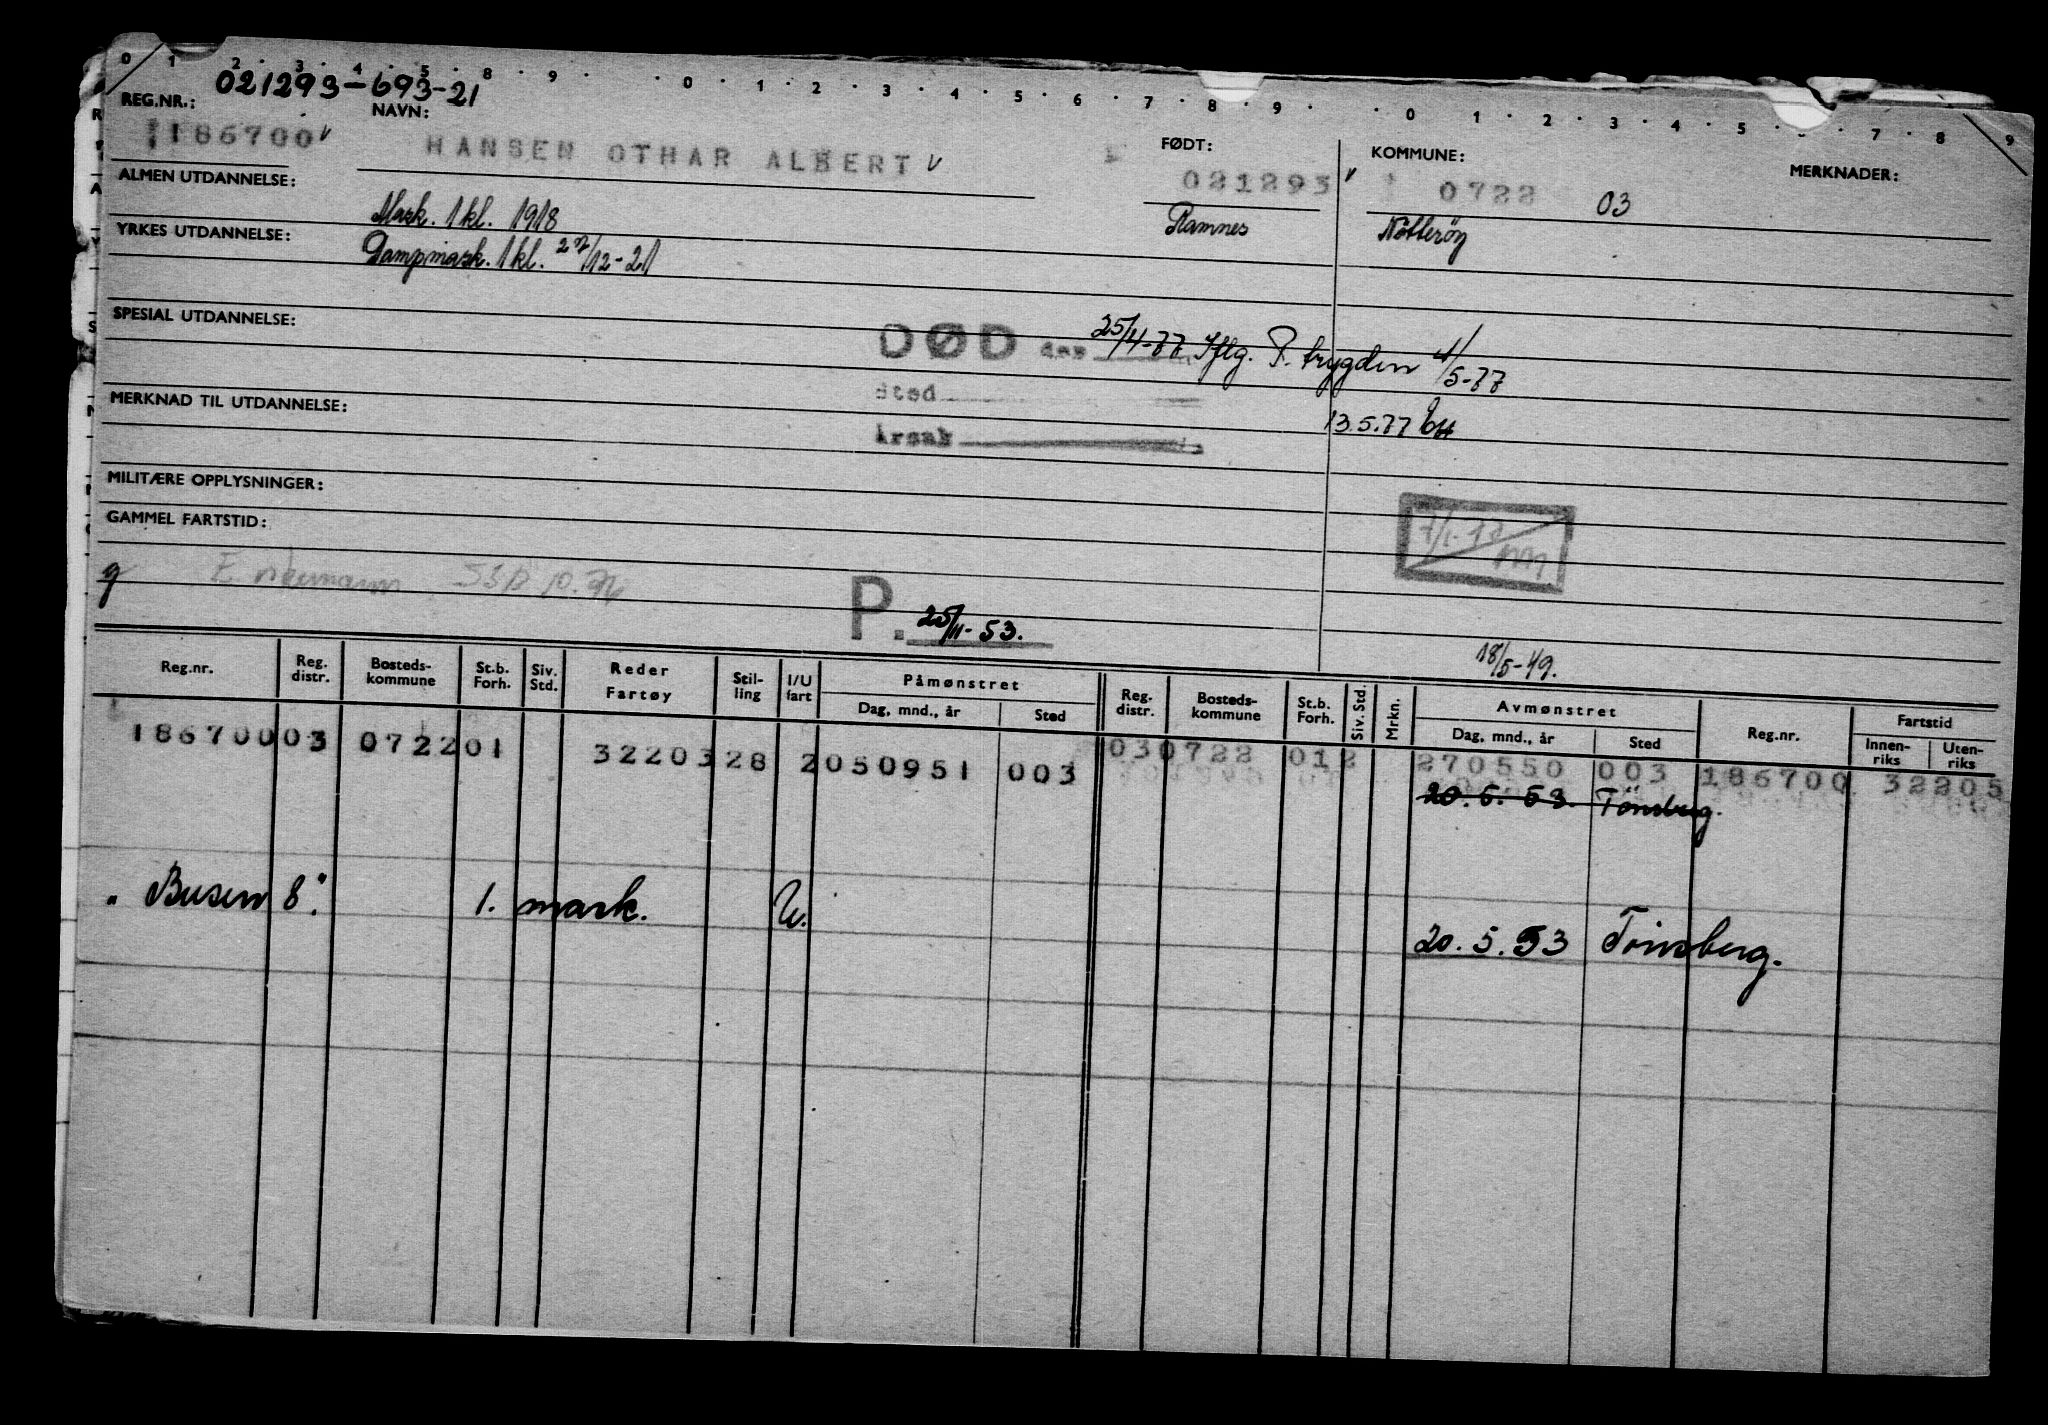 0 1 2 3 4 5 8 9 0 1 2 3 4 5 6 7 8 9 0 1 2 3 4 5 7 8 9
021293-693-21
REG.NR.: NAVN: FØDT: KOMMUNE: MERKNADER:
186700 v HANSEN OTHAR ALBERT v 021293 v 0722 03
ALMEN UTDANNELSE: Mask. 1kl. 1918 Ramnes Nötteröy
YRKES UTDANNELSE: Dampmask. 1kl. 27/12-21
SPESIAL UTDANNELSE: DØD den 25/4-77 Iflg. P. trygden 4/5-77
Sted
MERKNAD TIL UTDANNELSE: 13.5.77
Årsak
MILITÆRE OPPLYSNINGER:
GAMMEL FARTSTID:
g
P. 25/11-53.
18/5-49.
Reg.nr. Reg. distr. Bosteds-kommune St.b. Forh. Siv. Std. Reder Fartøy Stil-ling I/U fart Påmønstret Dag, mnd., år Sted Reg. distr. Bosteds-kommune St.b. Forh. Siv. Std. Mrkn. Avmønstret Dag, mnd., år Sted Reg.nr. Fartstid Innen-riks Uten-riks
186700 03 0722 01 3220328 2 050951 003 03 0722 01 2 270550 003 186700 32205
20.5.53. Tönsberg.
"Busen 8." 1. mask. U. 20.5.53 Tönsberg.